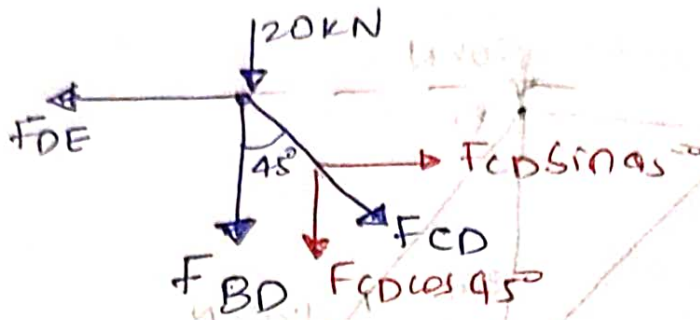 20KN
FDE
45°
FCD Sin 45°
FCD
FBD
FCD cos 45°